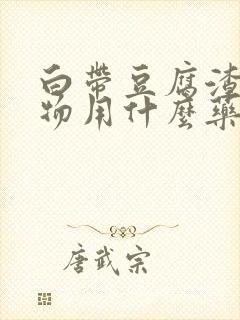 白帶豆腐渣
物用什麼藥
唐武宗